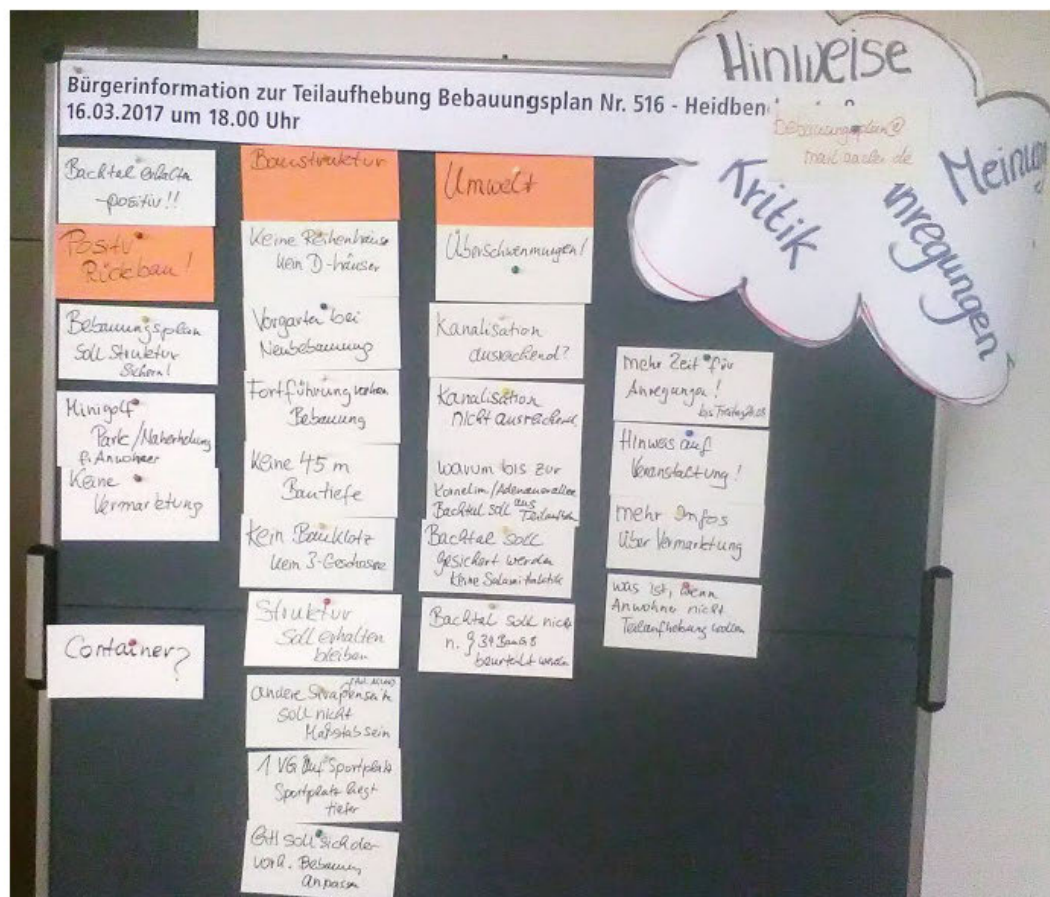 Bürgerinformation zur Teilaufhebung Bebauungsplan Nr. 516 - Heidben
16.03.2017 um 18.00 Uhr
Hinweise
Kritik
Meinun
nregungen
Bachtal erhalten
-positiv!!
Positiv
Rückbau!
Bebauungsplan
soll Struktur
sichern!
Minigolf
Park/Naherholung
f. Anwohner
Keine
Vermarktung
Container?
Baustruktur
Keine Reihenhäuser
kein D-häuser
Vorgarten bei
Neubebauung
Fortführung vorhen
Bebauung
Keine 45 m
Bautiefe
Kein Bauklotz
kein 3-Geschosse
Struktur
soll erhalten
bleiben
andere Straßenseite
soll nicht
Maßstab sein
1 VG auf Sportplatz
Sportplatz liegt
tiefer
GH soll sich der
vorh. Bebauung
anpassen
Umwelt
Überschwemmungen!
Kanalisation
ausreichend?
Kanalisation
nicht ausreichend
warum bis zur
Kornelim/Adenauerallee
Bachtal soll aus
Teilaufheb
Bachtal soll
gesichert werden
keine Salamitaktik
Bachtal soll nicht
n. § 34 BauGB
beurteilt werden
mehr Zeit für
Anregungen!
bis Freitag
Hinweis auf
Veranstaltung!
mehr Infos
über Vermarktung
was ist, wenn
Anwohner nicht
Teilaufhebung wollen